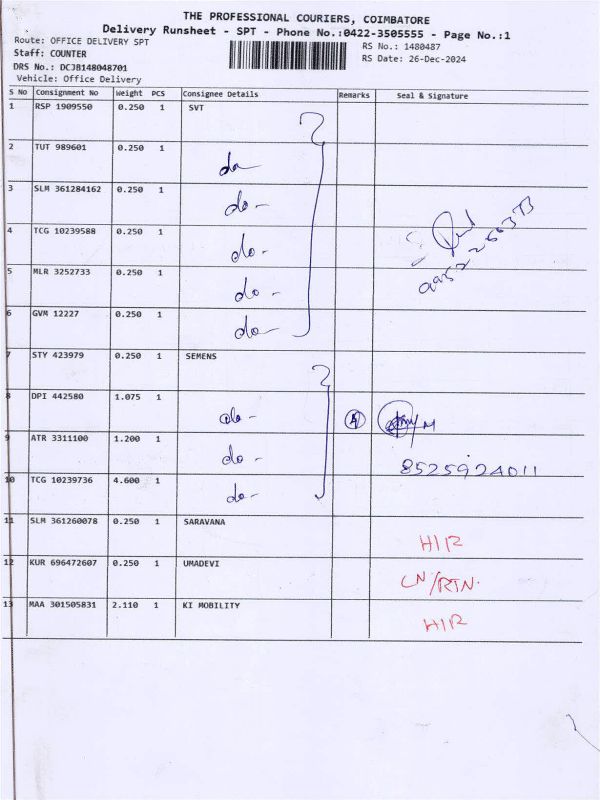 THE PROFESSIONAL COURIERS, COIMBATORE
Delivery Runsheet - SPT - Phone No.:0422-3505555 - Page No.:1
Route: OFFICE DELIVERY SPT
RS No.: 1480487
Staff: COUNTER
RS Date: 26-Dec-2024
DRS No.: DCJB148048701
Vehicle: Office Delivery
S No Consignment No Weight PCS Consignee Details Remarks Seal & Signature
1 RSP 1909550 0.250 1 SVT
2 TUT 989601 0.250 1 do
3 SLM 361284162 0.250 1 do-
4 TCG 10239588 0.250 1 do-
5 MLR 3252733 0.250 1 do-
6 GVM 12227 0.250 1 do-
7 STY 423979 0.250 1 SEMENS
8 DPI 442580 1.075 1 do- A
9 ATR 3311100 1.200 1 do- 8525924011
10 TCG 10239736 4.600 1 do-
11 SLM 361260078 0.250 1 SARAVANA H/R
12 KUR 696472607 0.250 1 UMADEVI CN/RTN.
13 MAA 301505831 2.110 1 KI MOBILITY H/R